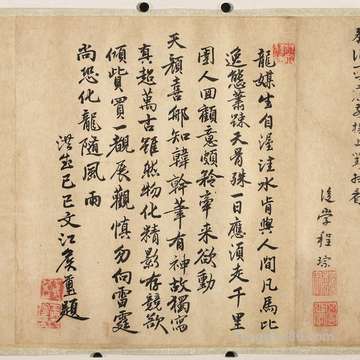 後學程琮
龍媒生自渥洼水肯與人間凡馬比
逸態蕭踈天骨殊一日應須走千里
圉人回顧意頗矜牽來欲動
天顏喜那知韓幹筆有神故獨寫
真超萬古雖然物化精影存競欲
傾貲買一覩展觀慎勿向雷霆
尚恐化龍隨風雨
洪熙乙巳文江題